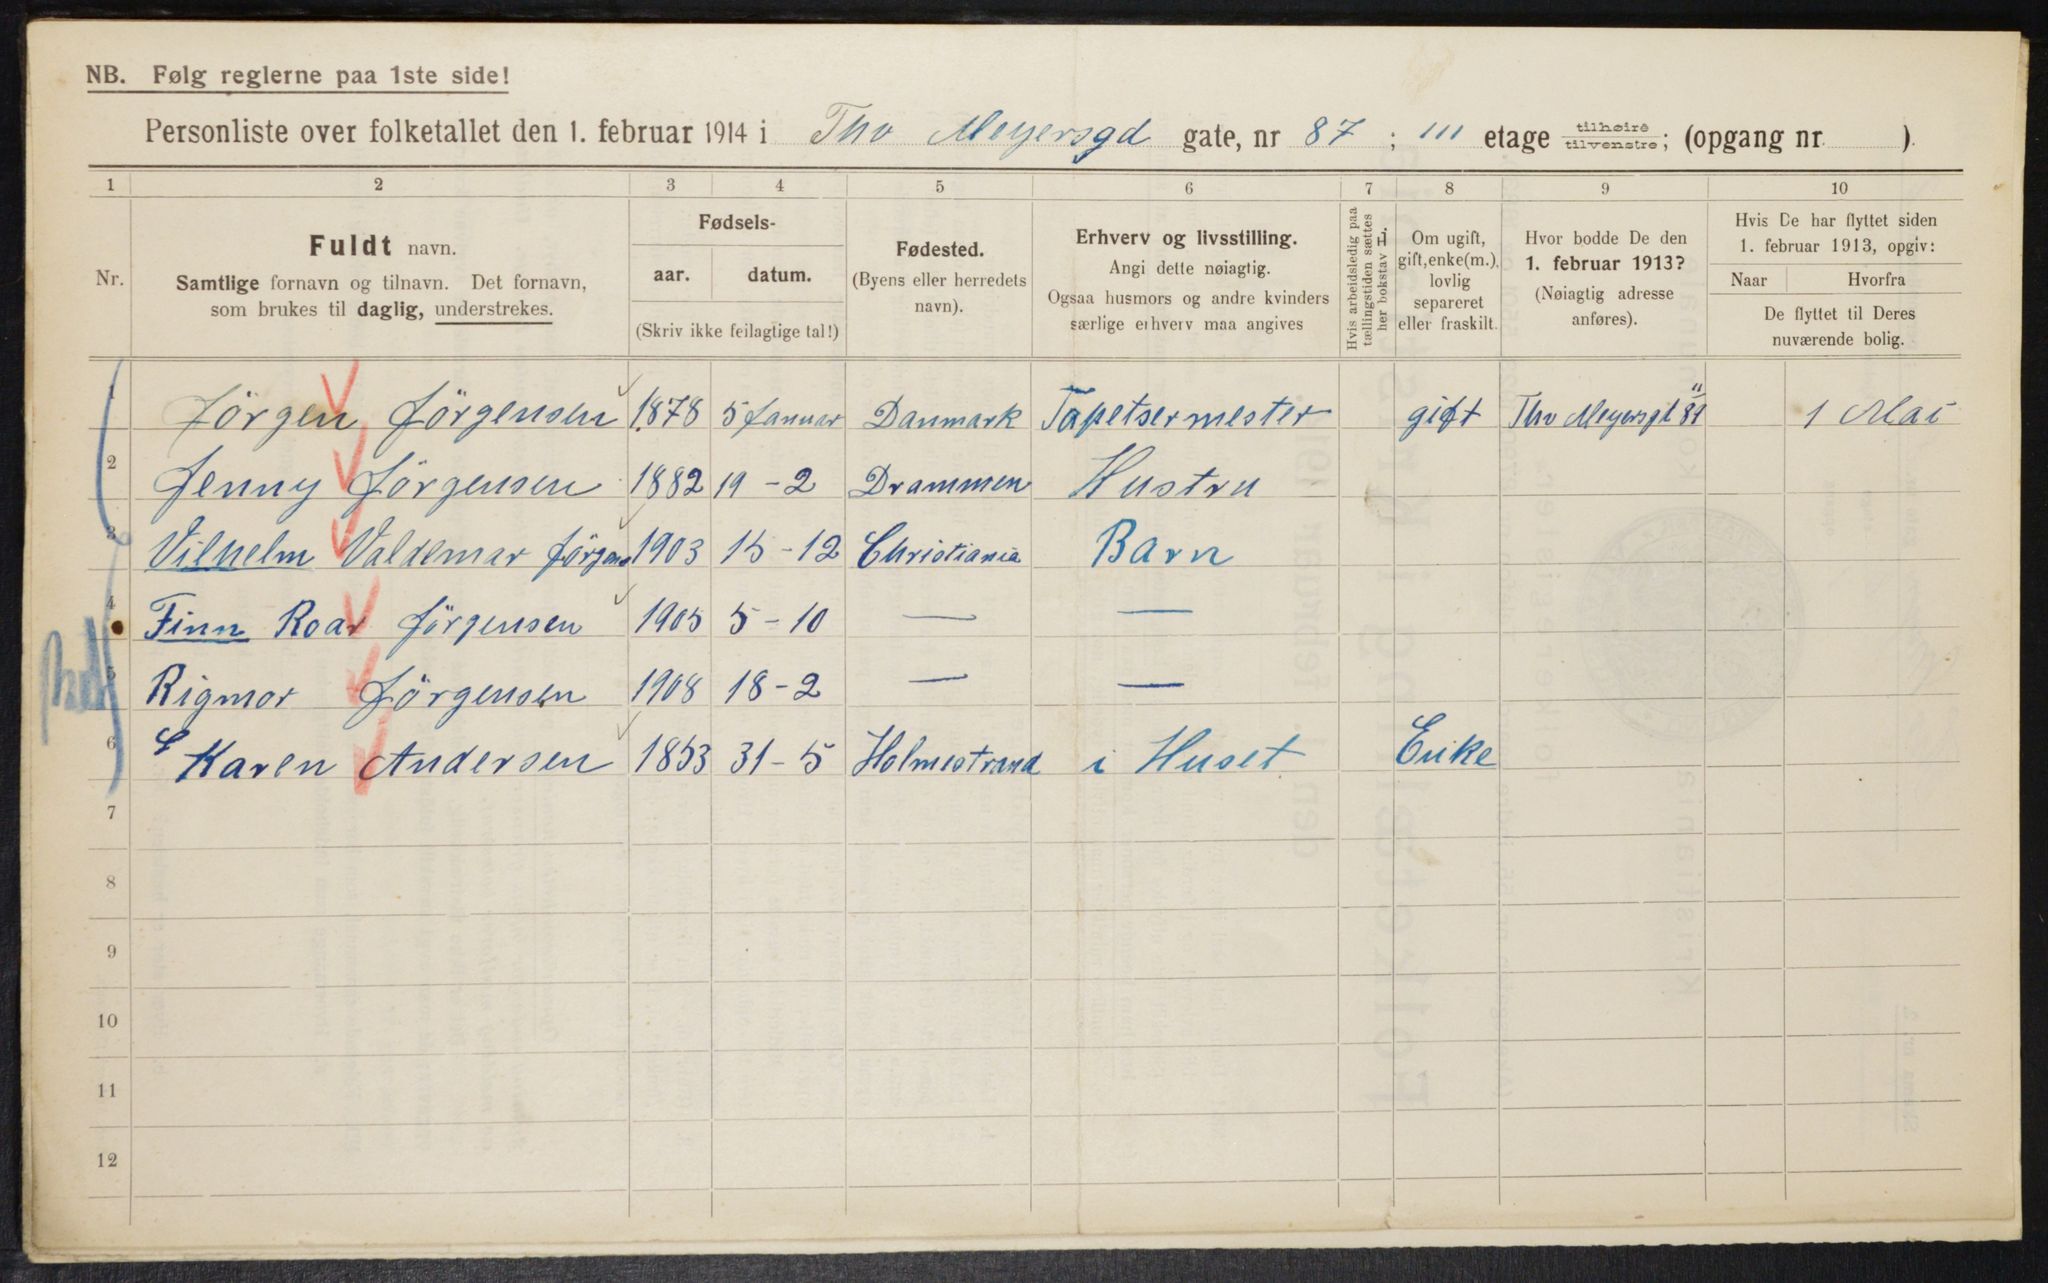 NB. Følg reglerne paa 1ste side!
Personliste over folketallet den 1. februar 1914 i Tho Meyersgd gate, nr 87 ; III etage tilhøire tilvenstre ; (opgang nr. ).
1 2 3 4 5 6 7 8 9 10
Nr.
Fuldt navn.
Samtlige fornavn og tilnavn. Det fornavn,
som brukes til daglig, understrekes.
Fødsels-
aar. datum.
(Skriv ikke feilagtige tal!)
Fødested.
(Byens eller herredets
navn).
Erhverv og livsstilling.
Angi dette nøiagtig.
Ogsaa husmors og andre kvinders
særlige erhverv maa angives
Hvis arbeidsledig paa
tællingstiden sættes
her bokstav L.
Om ugift,
gift, enke(m.),
lovlig
separeret
eller fraskilt.
Hvor bodde De den
1. februar 1913?
(Nøiagtig adresse
anføres).
Hvis De har flyttet siden
1. februar 1913, opgiv:
Naar Hvorfra
De flyttet til Deres
nuværende bolig.
1 Jörgen Jörgensen 1878 5 Januar Danmark Tapetsermester gift Tho Meyersgt 1 Mai
2 Jenny Jörgensen 1882 19-2 Drammen Hustru
3 Vilhelm Valdemar Jörgens 1903 15-12 Christiania Barn
4 Finn Roar Jörgensen 1905 5-10 — —
5 Rigmor Jörgensen 1908 18-2 — —
6 Karen Andersen 1853 31-5 Holmestrand i Huset Enke
7
8
9
10
11
12